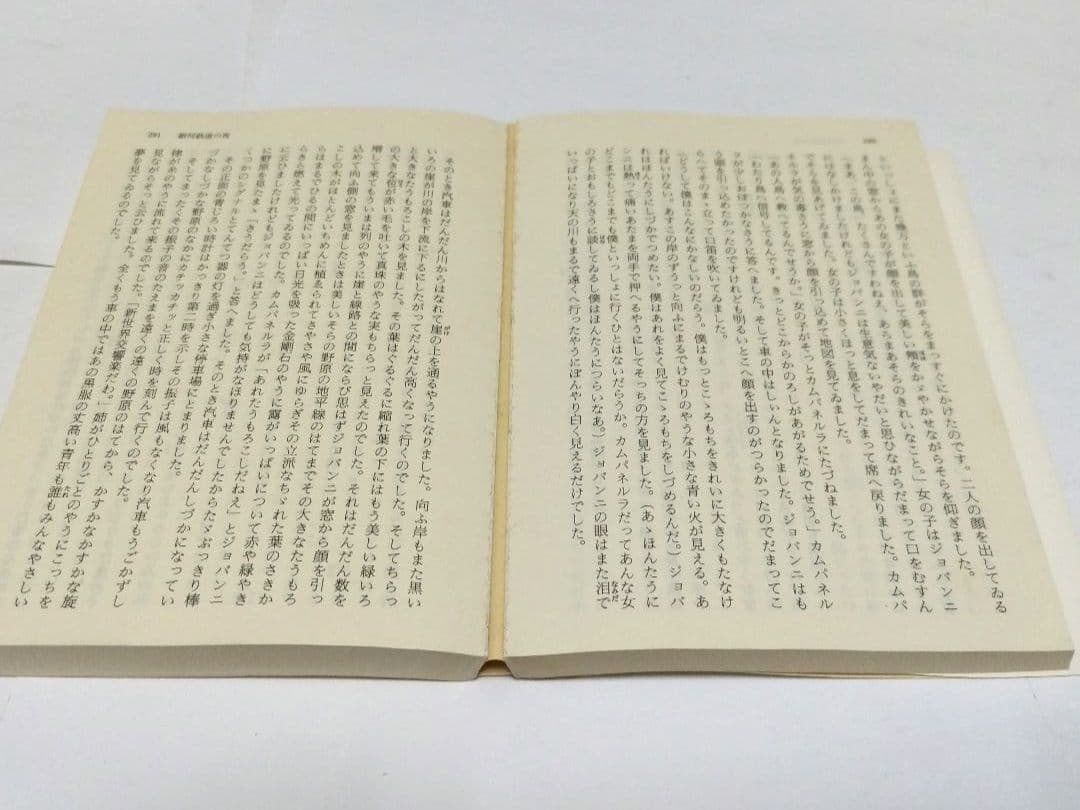 といっしょにまた幾万といふ鳥の群がそらをまっすぐにかけたのです。二人の顔を出してゐる
まん中の窓からあの女の子が顔を出して美しい頬をかゞやかせながらそらを仰ぎました。
「まあ、この鳥、たくさんですわねえ、あらまあそらのきれいなこと。」女の子はジョバンニ
にはなしかけましたけれどもジョバンニは生意気ないやだいと思ひながらだまって口をむすん
でそらを見あげてゐました。女の子は小さくほっと息をしてだまって席へ戻りました。カムパ
ネルラが気の毒さうに窓から顔を引っ込めて地図を見てゐました。
「あの人鳥へ教へてるんでせうか。」女の子がそっとカムパネルラにたづねました。
「わたり鳥へ信号してるんです。きっとどこからかのろしがあがるためでせう。」カムパネル
ラが少しおぼつかなさうに答へました。そして車の中はしぃんとなりました。ジョバンニはも
う頭を引っ込めたかったのですけれども明るいとこへ顔を出すのがつらかったのでだまってこ
らへてそのまゝ立って口笛を吹いてゐました。
（どうして僕はこんなにかなしいのだらう。僕はもっとこゝろもちをきれいに大きくもたなけ
ればいけない。あすこの岸のずうっと向ふにまるでけむりのやうな小さな青い火が見える。あ
れはほんたうにしづかでつめたい。僕はあれをよく見てこゝろもちをしづめるんだ。）ジョバ
ンニは熱って痛いあたまを両手で押へるやうにしてそっちの方を見ました。（あゝほんたうに
どこまでもどこまでも僕といっしょに行くひとはないだらうか。カムパネルラだってあんな女
の子とおもしろさうに談してゐるし僕はほんたうにつらいなあ。）ジョバンニの眼はまた泪で
いっぱいになり天の川もまるで遠くへ行ったやうにぼんやり白く見えるだけでした。
291　銀河鉄道の夜
そのとき汽車はだんだん川からはなれて崖の上を通るやうになりました。向ふ岸もまた黒い
いろの崖が川の岸を下流に下るにしたがってだんだん高くなって行くのでした。そしてちらっ
と大きなたうもろこしの木を見ました。その葉はぐるぐるに縮れ葉の下にはもう美しい緑いろ
の大きな苞が赤い毛を吐いて真珠のやうな実もちらっと見えたのでした。それはだんだん数を
増して来てもういまは列のやうに崖と線路との間にならび思はずジョバンニが窓から顔を引っ
込めて向ふ側の窓を見ましたときは美しいそらの野原の地平線のはてまでその大きなたうもろ
こしの木がほとんどいちめんに植ゑられてさやさや風にゆらぎその立派なちゞれた葉のさきか
らはまるでひるの間にいっぱい日光を吸った金剛石のやうに露がいっぱいについて赤や緑やき
らきら燃えて光ってゐるのでした。カムパネルラが「あれたうもろこしだねえ」とジョバンニ
に云ひましたけれどもジョバンニはどうしても気持がなほりませんでしたからたゞぶっきり棒
に野原を見たまゝ「さうだらう。」と答へました。そのとき汽車はだんだんしづかになってい
くつかのシグナルとてんてつ器の灯を過ぎ小さな停車場にとまりました。
その正面の青じろい時計はかっきり第二時を示しその振子は風もなくなり汽車もうごかずし
づかなしづかな野原のなかにカチッカチッと正しく時を刻んで行くのでした。
そしてまったくその振子の音のたえまを遠くの遠くの野原のはてから、かすかなかすかな旋
律が糸のやうに流れて来るのでした。「新世界交響楽だわ。」姉がひとりごとのやうにこっちを
見ながらそっと云ひました。全くもう車の中ではあの黒服の丈高い青年も誰もみんなやさしい
夢を見てゐるのでした。